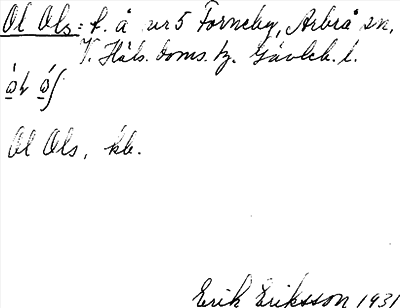 Ol Ols: f. å nr 5 Forneby, Arbrå sn,
V. Häls. doms. hg. Gävleb. l.
Ol Ols, kb.
Erik Eriksson 1931